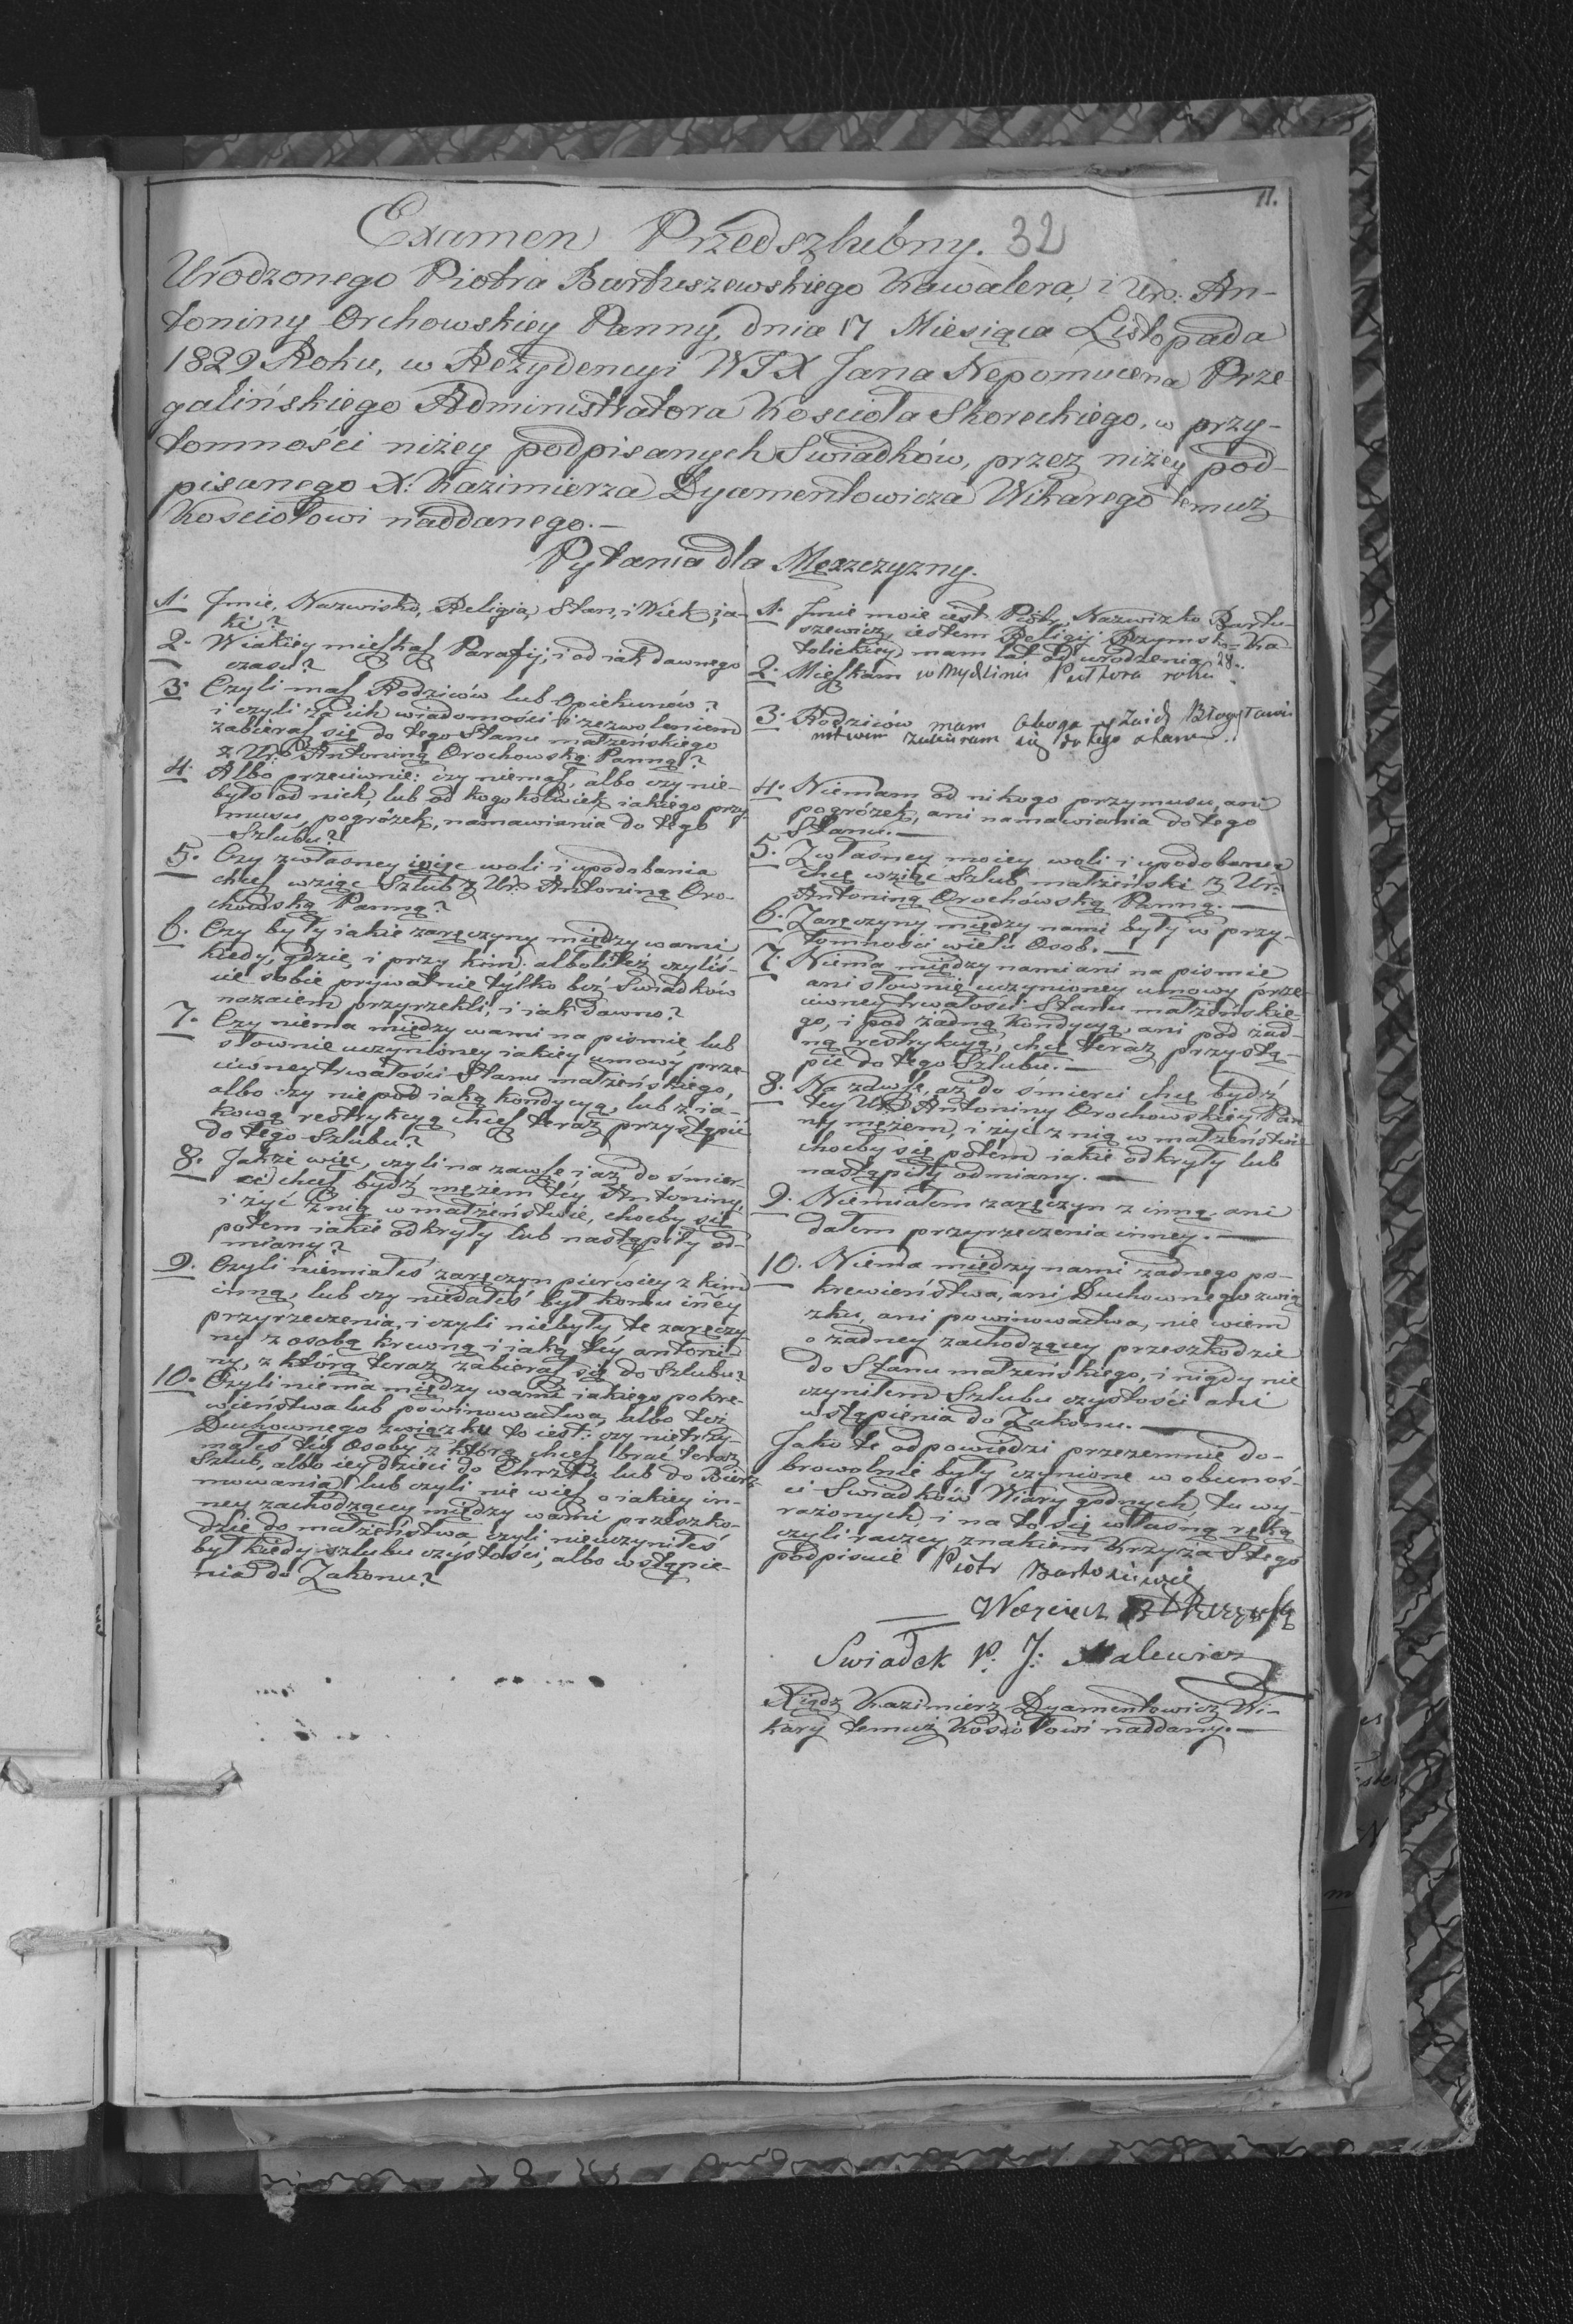 11.
Examen Przedszlubny. 32
Urodzonego Piotra Bartuszewskiego Kawalera, i Ur: An-
toniny Orchowskiey Panny, dnia 17 Miesiąca Listopada
1829 Roku, w Rezydencyi WJX Jana Nepomucena Prze-
galińskiego Administratora Koscioła Skoreckiego, w przy-
tomności niżey podpisanych Swiadków, przez niżey pod-
pisanego X: Kazimierza Dyamentowicza Wikarego temuż
Kosciołowi naddanego.—
Pytania dla Męzczyzny.
1. Jmie, Nazwisko, Religia, Stan, i Wiek, ja-
ki?
2. W iakiey mieszkasz Parafij, i od iak dawnego
czasu?
3. Czyli masz Rodziców lub Opiekunów?
i czyli za ich wiadomości i zezwoleniem
zabierasz się do tego Stanu małżeńskiego
z Ur: Antoniną Orochowską Panną?
4. Albo przeciwnie: czy niemasz, albo czy nie-
było od nich, lub od kogokolwiek iakiego przy-
musu, pogróżek, namawiania do tego
Szlubu?
5. Czy z własney więc woli i upodobania
chcesz wziąć Szlub z Ur: Antoniną Oro-
chowską Panną?
6. Czy były iakie zaręczyny między wami
kiedy, gdzie, i przy kim: alboliteż czyliś-
cie sobie prywatnie tylko bez Swiadków
nazaiem przyrzekli, i iak dawno?
7. Czy niema między wami na pismie lub
słownie uczynioney iakiey umowy prze-
ciwney trwałości Stanu małżeńskiego,
albo czy nie pod iaką kondycyą, lub z ia-
kową restrykcyą chcesz teraz przystąpić
do tego Szlubu?
8. Jakże więc, czyli na zawsze i aż do śmier-
ci chcesz bydź mężem téy Antoniny,
i żyć z nią w małżeństwie, chocby się
potem iakie odkryły lub nastąpiły od-
miany?
9. Czyli niemiałeś zaręczyn pierwiey z kim
inną, lub czy niedałeś był komu inney
przyrzeczenia, i czyli niebyły te zaręczy-
ny z osobą krewną i iaką téy antoni-
ny, z którą teraz zabierasz się do Szlubu?
10. Czyli niema między wami iakiego pokre-
wieństwa lub powinowactwa, albo też
Duchownego związku to iest: czy nietrzy-
małeś téy Osoby z którą chcesz brać teraz
Szlub, albo iey dzieci do Chrztu lub do Bierz-
mowania, lub czyli nie wiesz o iakiey in-
ney zachodzącey między wami przeszko-
dzie do małżeństwa, czyli nieuczyniłeś
był kiedy szlubu czystości, albo wstąpie-
nia do Zakonu?
1. Jmie moie iest Piotr, Nazwizko Bartu-
szewicz, iestem Religij Rzymsko-Ka-
tolickiey, mam lat od urodzenia 28.
2. Mieszkam w Mydlinie Puttora roku
3. Rodziców mam Oboga y Zaich Błogosławi
nstwem zabieram się do tego stanu..
4. Niemam od nikogo przymusu, ani
pogróżek, ani namawiania do tego
Stanu.—
5. Z własney moiey woli i upodobania
chcę wziąć Szlub małżeński z Ur:
Antoniną Orochówską Panną.—
6. Zaręczyny między nami były w przy-
tomności wielu Osob.—
7. Niema między nami ani na pismie
ani słownie uczynioney umowy prze-
ciwney trwałości Stanu małżeńskie-
go, i pod żadną Kondycyą, ani pod żad-
ną restrykcyą, chcę teraz przystą-
pić do tego Szlubu.—
8. Na zawsze, aż do śmierci chcę bydź
téy Ur: Antoniny Orochowskiéy Pan-
ny mężem, i żyć z nią w małżeństwie
chocby się potem iakie odkryły lub
nastąpiły odmiany.—
9. Niemiałem zaręczyn z inną, ani
dałem przyrzeczenia inney.—
10. Niema między nami żadnego po-
krewieństwa, ani Duchownego zwią-
zku, ani powinowactwa, nie wiem
o żadney zachodzącey przeszkodzie
do Stanu małżeńskiego, i nigdy nie
czyniłem Szlubu czystości ani
wstąpienia do Zakonu.—
Jako te odpowiedzi przezemnie do-
browolnie były czynione w obecnoś-
ci Swiadków Wiary godnych, tu wy-
rażonych, i na to się własną ręką
czyli raczey znakiem Krzyża Stego
podpisuie Piotr Bartosiewicz
Woyciech
Swiadek P. J: Malewicz
Xiądz Kazimierz Dyamentowicz Wi-
kary temuż Kosciołowi naddany.—